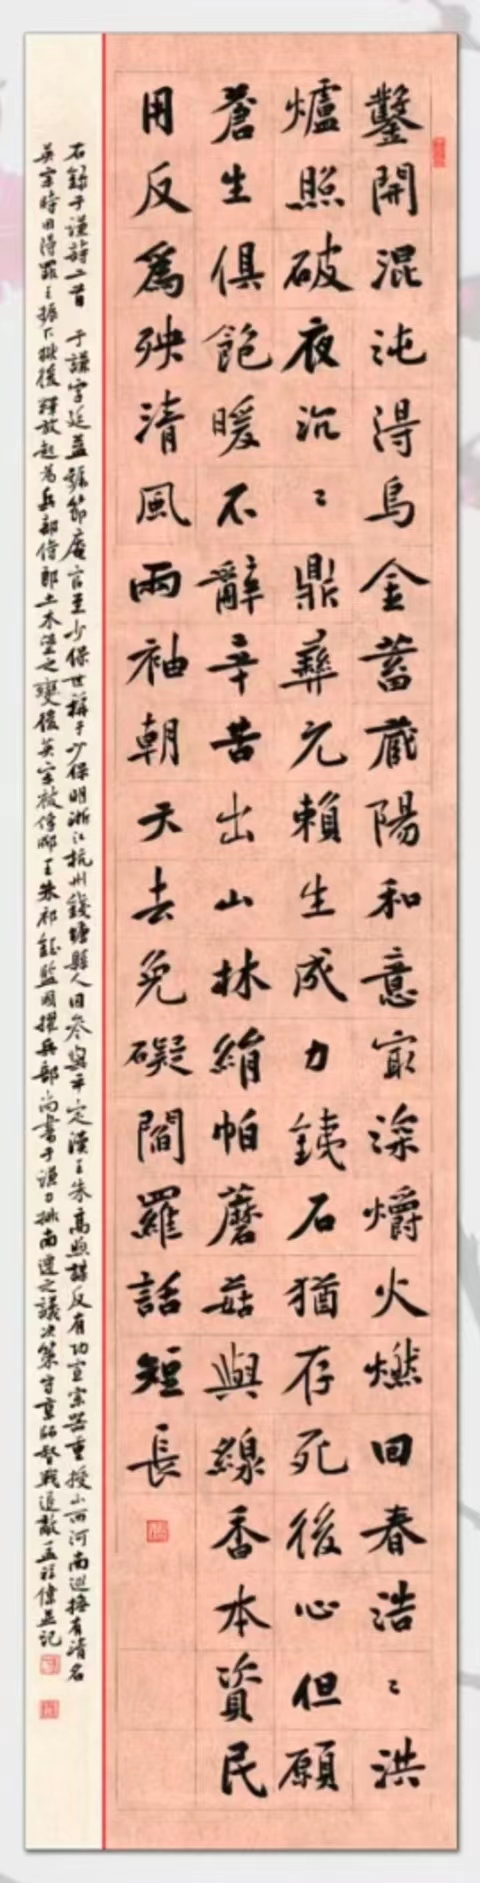 鑿開混沌得烏金蓄藏陽和意冣深爝火燃回春浩〻洪
爐照破夜沉〻鼎彝元賴生成力銕石猶存死後心但願
蒼生俱飽暖不辭辛苦出山林絹帕蘑菇與線香本資民
用反爲殃清風兩袖朝天去免礙閻羅話短長
右録于謙詩二首 于謙字廷益號節庵官至少保世稱于少保明浙江杭州錢塘縣人因參與平定漢王朱高煦謀反有功宣宗器重授山西河南巡撫有清名
英宗時因得罪王振下獄後釋放起爲兵部侍郎土木堡之變後英宗被俘郕王朱祁鈺監國擢兵部尚書于謙力排南遷之議決策守京師督戰退敵 孟祥偉并記